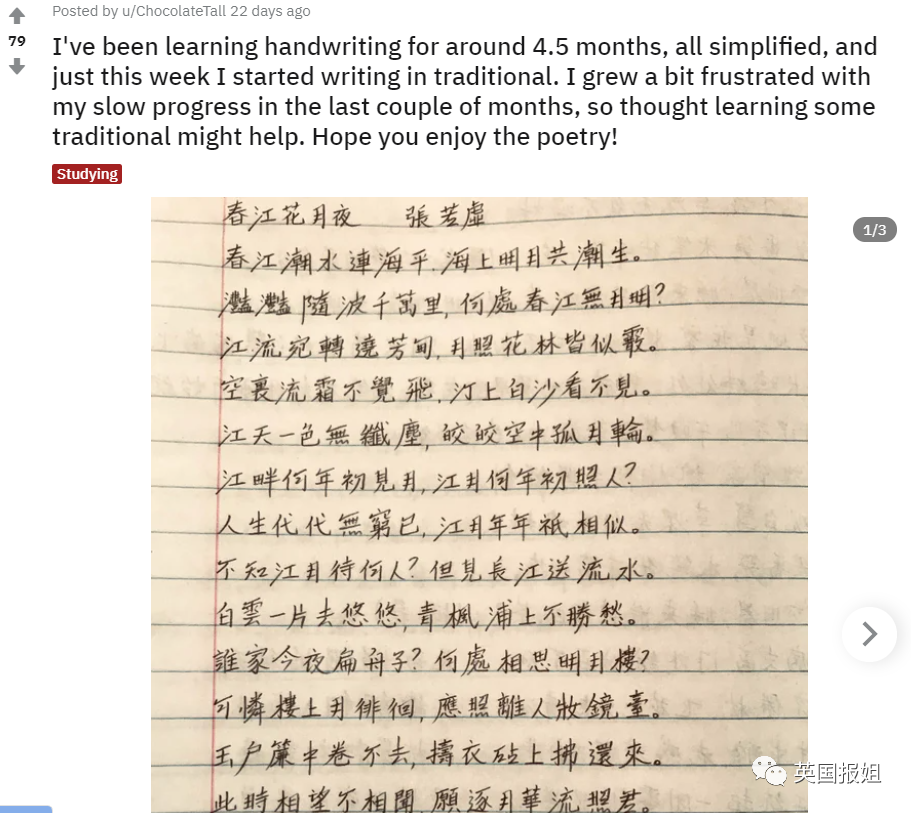 Posted by u/ChocolateTall 22 days ago
79
I've been learning handwriting for around 4.5 months, all simplified, and
just this week I started writing in traditional. I grew a bit frustrated with
my slow progress in the last couple of months, so thought learning some
traditional might help. Hope you enjoy the poetry!
Studying
1/3
春江花月夜 張若虛
春江潮水連海平,海上明月共潮生。
灩灩隨波千萬里,何處春江無月明?
江流宛轉遶芳甸,月照花林皆似霰。
空裏流霜不覺飛,汀上白沙看不見。
江天一色無纖塵,皎皎空中孤月輪。
江畔何年初見月,江月何年初照人?
人生代代無窮已,江月年年祇相似。
不知江月待何人?但見長江送流水。
白雲一片去悠悠,青楓浦上不勝愁。
誰家今夜扁舟子?何處相思明月樓?
可憐樓上月徘徊,應照離人妝鏡臺。
玉户簾中卷不去,擣衣砧上拂還來。
此時相望不相聞,願逐月華流照君。
英国报姐